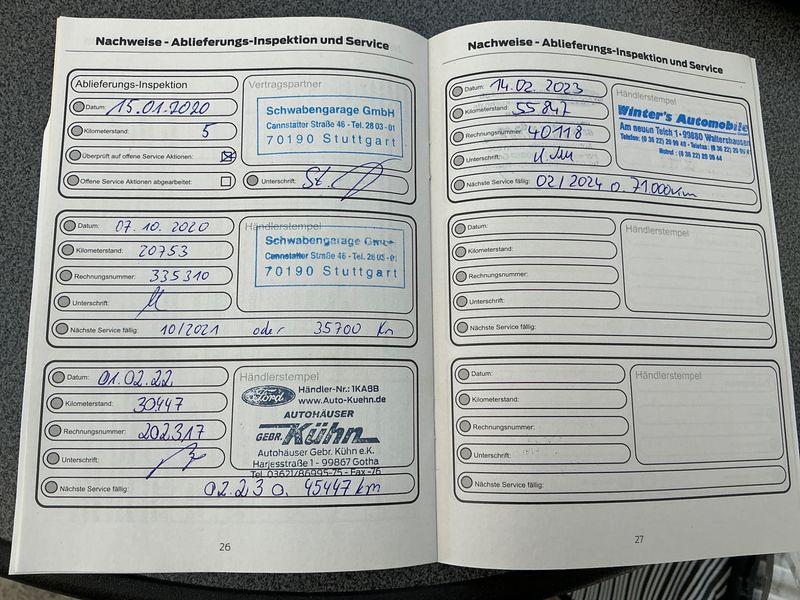 Nachweise - Ablieferungs-Inspektion und Service
Ablieferungs-Inspektion
Datum: 15.01.2020
Kilometerstand: 5
Überprüft auf offene Service Aktionen:
Offene Service Aktionen abgearbeitet:
Vertragspartner
Schwabengarage GmbH
Cannstatter Straße 46 - Tel. 28 03 - 01
70190 Stuttgart
Unterschrift:
Datum: 07.10.2020
Kilometerstand: 20753
Rechnungsnummer: 335310
Unterschrift:
Nächste Service fällig: 10/2021 oder 35700 Km
Händlerstempel
Schwabengarage GmbH
Cannstatter Straße 46 - Tel. 28 03 - 01
70190 Stuttgart
Datum: 01.02.22
Kilometerstand: 30447
Rechnungsnummer: 202317
Unterschrift:
Nächste Service fällig: 02.23 o. 45447 km
Händlerstempel
Ford
Händler-Nr.: 1KA8B
www.Auto-Kuehn.de
AUTOHÄUSER
GEBR. Kühn
Autohäuser Gebr. Kühn e.K.
Harjesstraße 1 - 99867 Gotha
Tel. 03621/86995-75 - Fax -76
26
Nachweise - Ablieferungs-Inspektion und Service
Datum: 14.02.2023
Kilometerstand: 55847
Rechnungsnummer: 40118
Unterschrift:
Nächste Service fällig: 02/2024 o. 71.000km
Händlerstempel
Winter's Automobile
Am neuen Teich 1 · 99880 Waltershausen
Telefon: (0 36 22) 20 99 40 · Telefax: (0 36 22) 20 99 4
Notruf: (0 36 22) 20 99 44
Datum:
Kilometerstand:
Rechnungsnummer:
Unterschrift:
Nächste Service fällig:
Händlerstempel
Datum:
Kilometerstand:
Rechnungsnummer:
Unterschrift:
Nächste Service fällig:
Händlerstempel
27